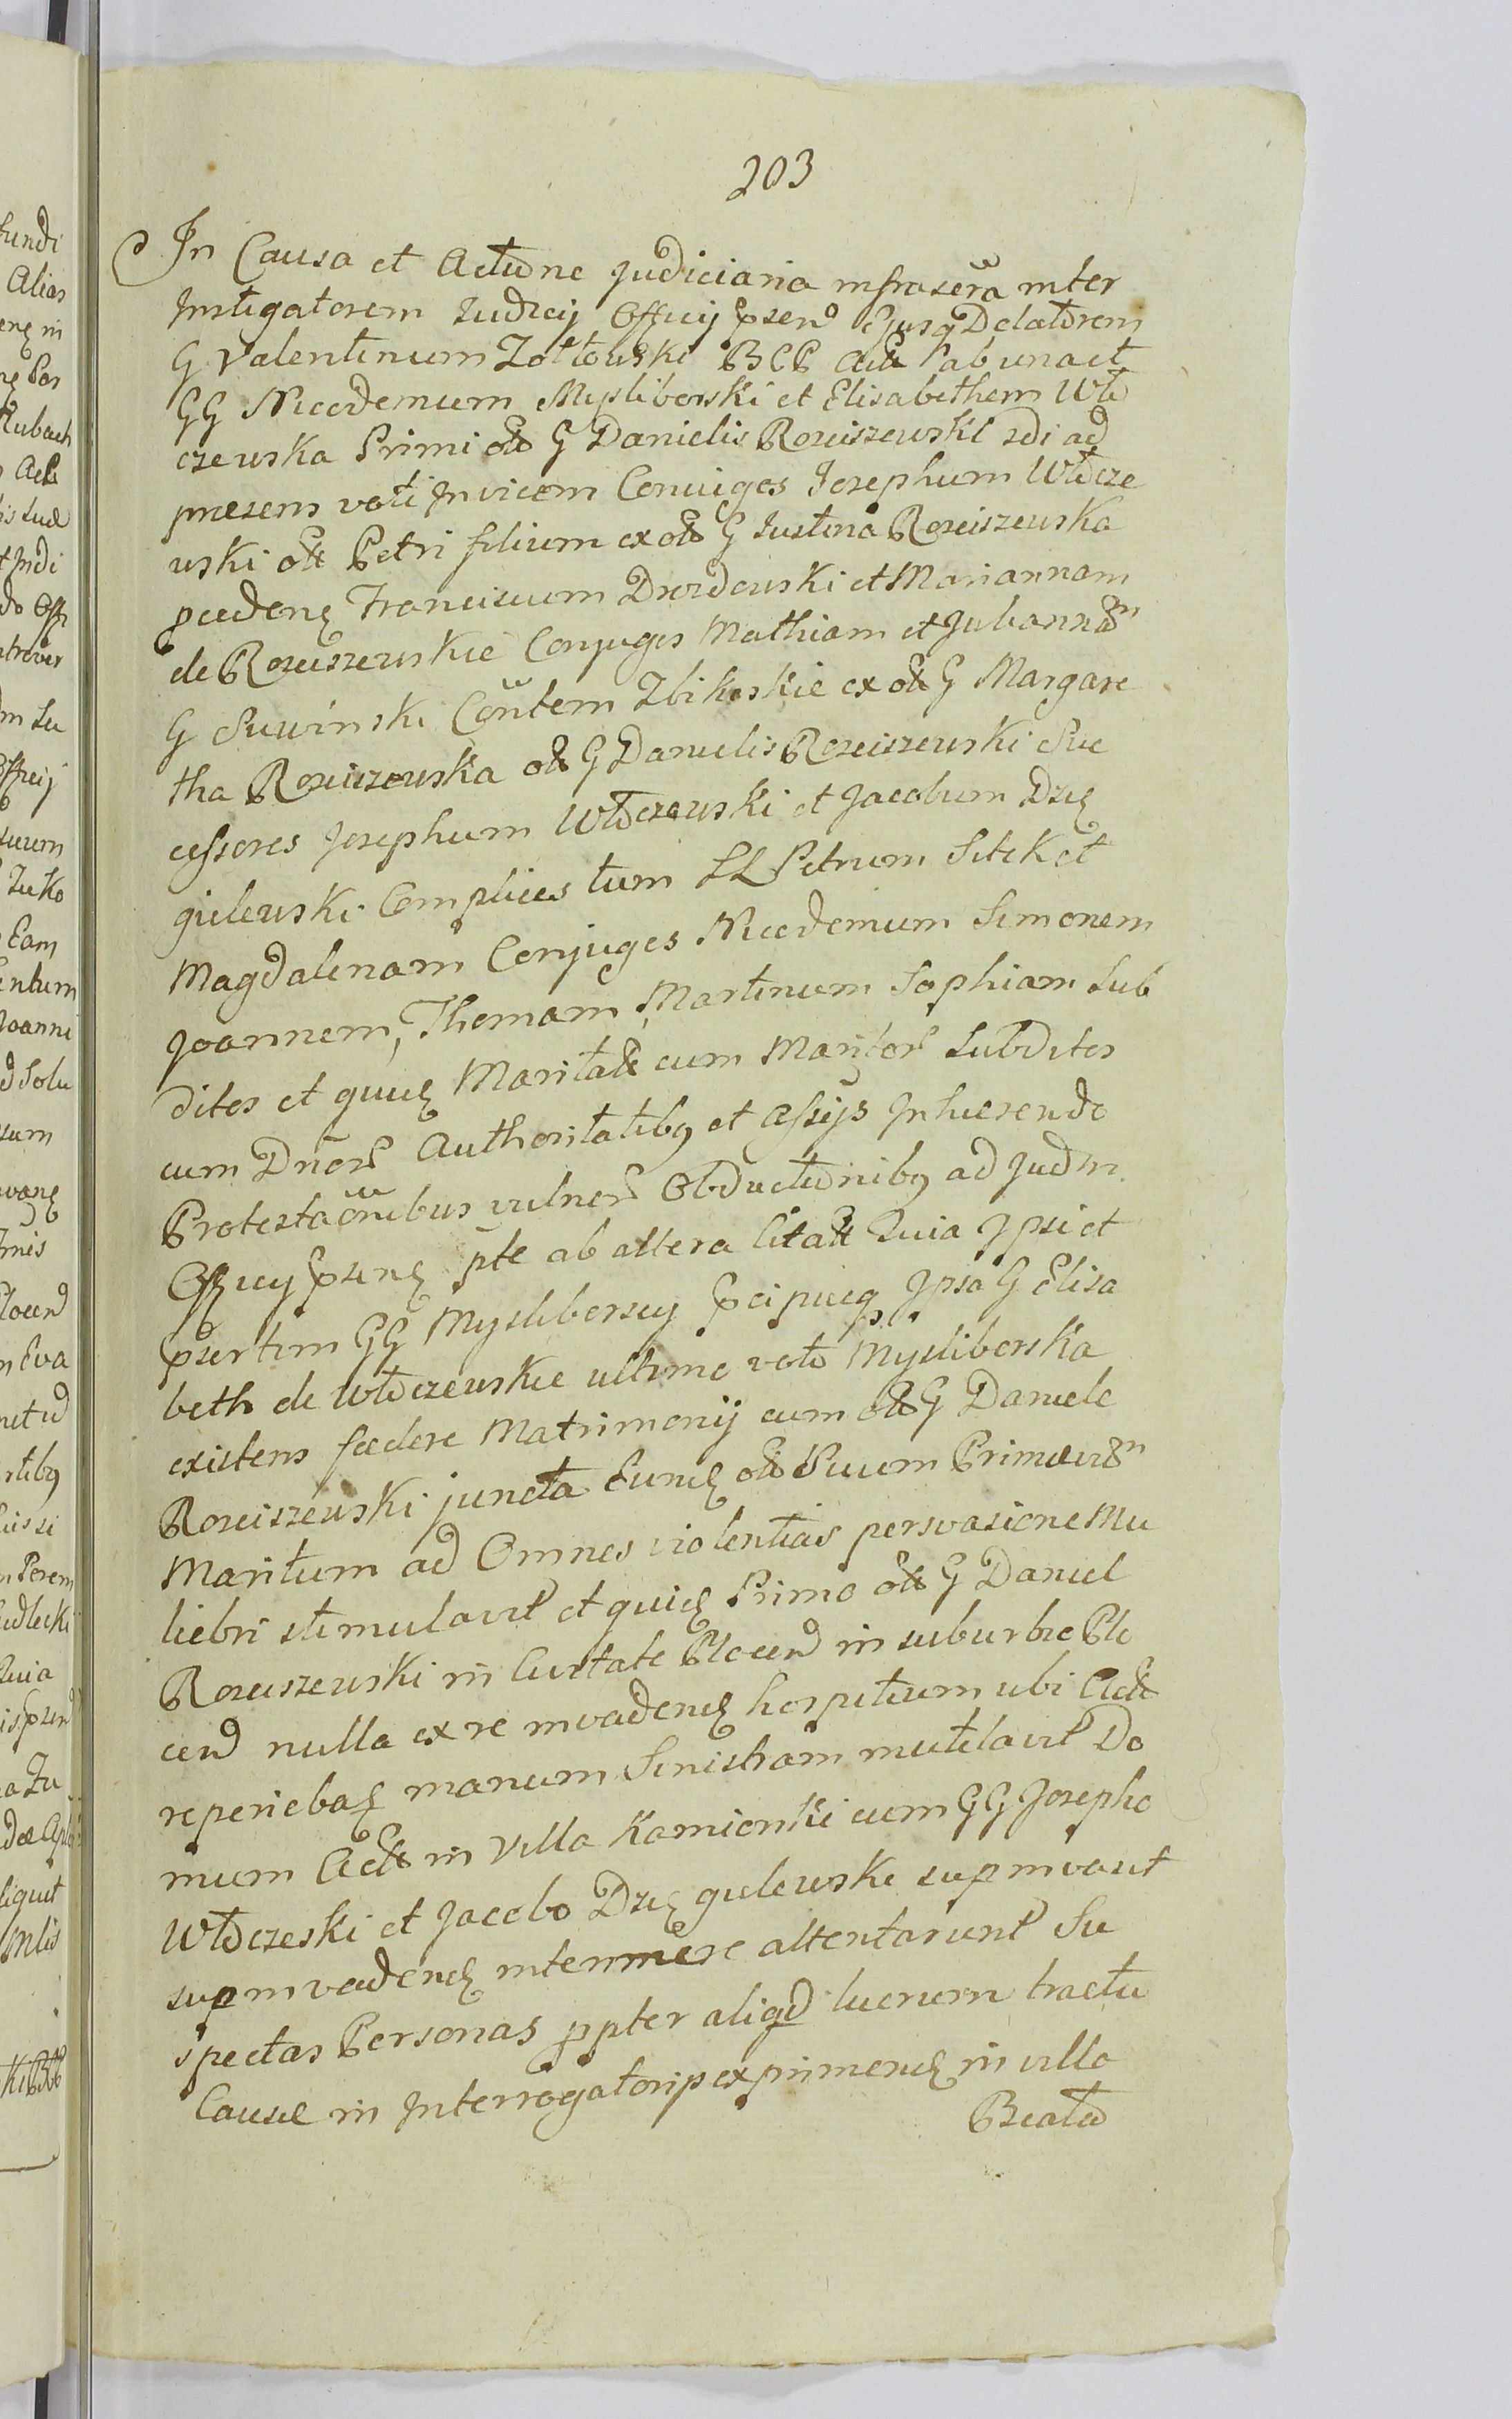 203
In Causa et Actione Judiciaria infrascra inter
Instigatorem Judicij Officij psen Ejusq Delatorem
G Valentinum Zołtowski BCP Act ab una et
GG Nicodemum Mysliborski et Elisabetham Wło
czewska Primi olt G Danielis Rosciszewski 2di ad
praesens voti Invicem Conjuges Josephum Włocze
wski olt Petri filium ex olt G Justina Rosciszewska
pcedenę Franciscum Drozdowski et Mariannam
de Rosciszewskie Conjuges Mathiam et Jubannam
G Suwinski Contem Zbikoskie ex olt G Margare
tha Rosciszewska olt G Danielis Rosciszewski Suc
cessores Josephum Włoczewski et Jacobum Dzię
gielewski Complices tum LL Petrum Sitek et
Magdalenam Conjuges Nicodemum Simonem
Joannem, Thomam, Martinum Sophiam Sub
ditos et quuę Maritatt cum Maritor Subditos
cum Dnor Authoritatibq et Assijs Inhaerendo
Protestaonibus vulner Obductionibq ad Judm
Officij psenę pte ab altera Citatt Quia Ipsi et
psertim GG Mysliborscy pcipueq Ipsa G Elisa
beth de Włoczewskie ultimo voto Mysliborska
existens foedere Matrimonij cum olt G Daniele
Rosciszewski juncta Eundę olt Suum Primaevm
Maritum ad Omnes violentias persvasione Mu
liebri stimulavit et quidę Primo olt G Daniel
Rosciszewski in Civitate Plocen in suburbio Plo
cen nulla ex re invadendę hospitium ubi Actt
reperiebaę manum Sinistram mutilavit Do
mum Actt in Villa Kamionki cum GG Josepho
Włoczeski et Jacobo Dzię gielewski sup invasit
sup invadendę interimere attentarunt Su
spectas Personas ppter aliqd lucrum tractu
Causae in Interrogatorip exprimendę in villa
Beato